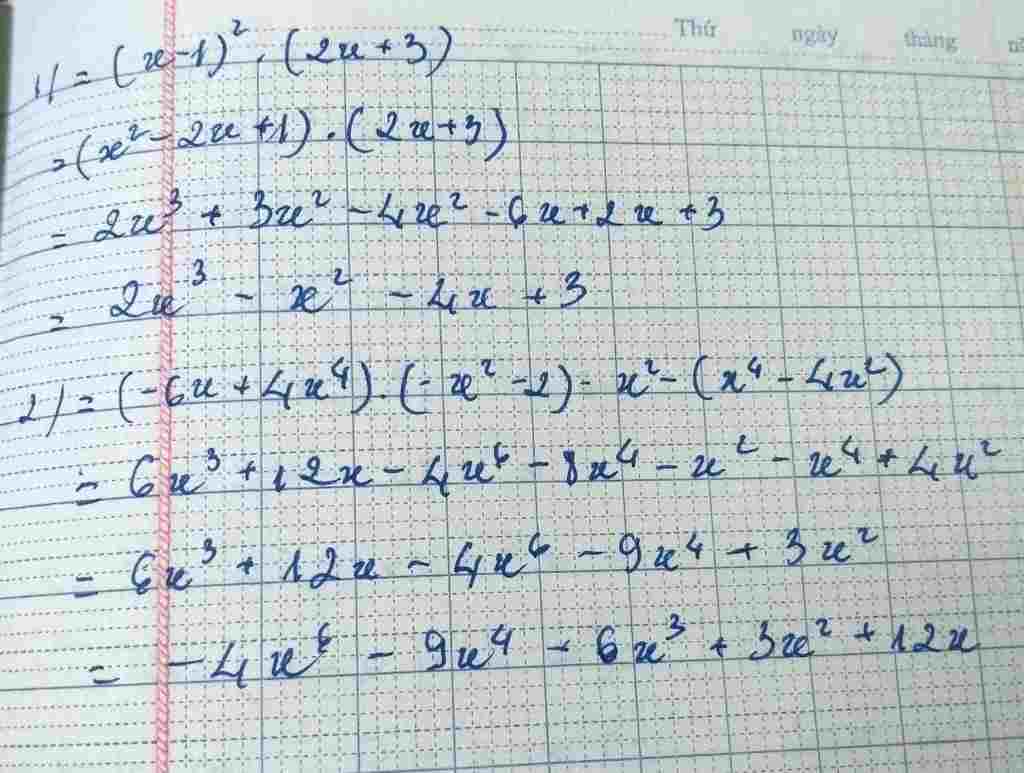 Thứ ngày tháng
1) = (x-1)². (2x+3)
= (x² - 2x + 1) . (2x+3)
= 2x³ + 3x² - 4x² - 6x + 2x + 3
= 2x³ - x² - 4x + 3
2) = (-6x + 4x⁴) . (-x² - 2) - x² - (x⁴ - 4x²)
= 6x³ + 12x - 4x⁶ - 8x⁴ - x² - x⁴ + 4x²
= 6x³ + 12x - 4x⁶ - 9x⁴ + 3x²
= -4x⁶ - 9x⁴ + 6x³ + 3x² + 12x